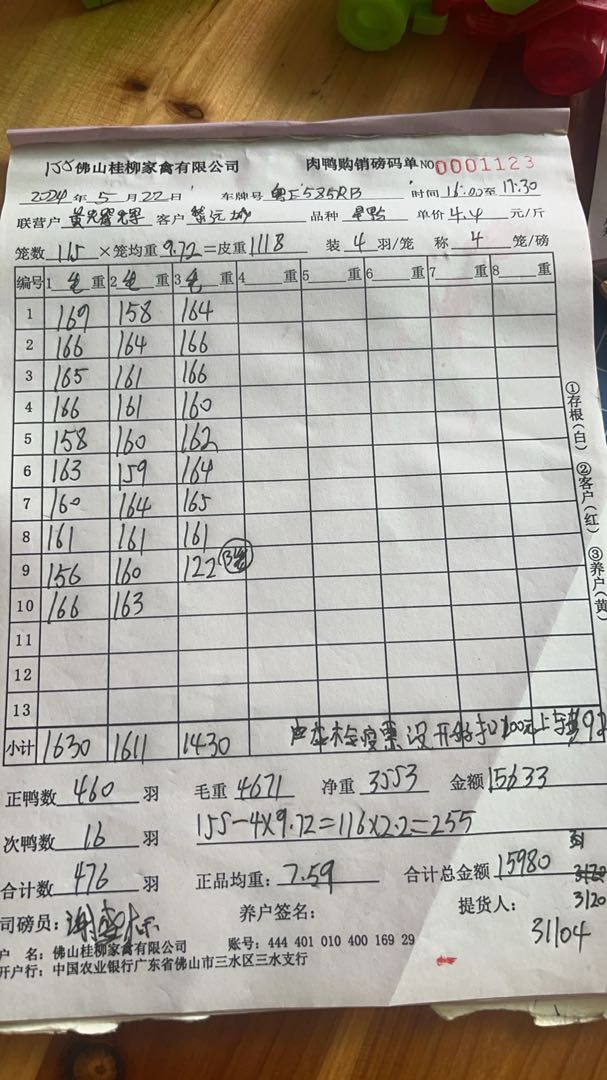 155 佛山桂柳家禽有限公司 肉鸭购销磅码单 NO 0001123
2024 年 5 月 22 日 车牌号 粤E585RB 时间 16:00 至 17:30
联营户 客户 品种 单价 4.4 元/斤
笼数 115 ×笼均重 9.72 =皮重 1118 装 4 羽/笼 称 4 笼/磅
编号 1 毛 重 2 毛 重 3 毛 重 4 重 5 重 6 重 7 重 8 重
1 169 158 164
2 166 164 166
3 165 161 166
4 166 161 160
5 158 160 162
6 163 159 164
7 160 164 165
8 161 161 161
9 156 160 122 3笼
10 166 163
11
12
13
小计 1630 1611 1430 检疫票没开 100元上车费
正鸭数 460 羽 毛重 4671 净重 3553 金额 15633
次鸭数 16 羽 155-4×9.72=116×2.2=255
合计数 476 羽 正品均重: 7.59 合计总金额 15980
司磅员: 养户签名: 提货人: 3120
31104
户 名: 佛山桂柳家禽有限公司 账号: 444 401 010 400 169 29
开户行: 中国农业银行广东省佛山市三水区三水支行
①存根(白) ②客户(红) ③养户(黄)